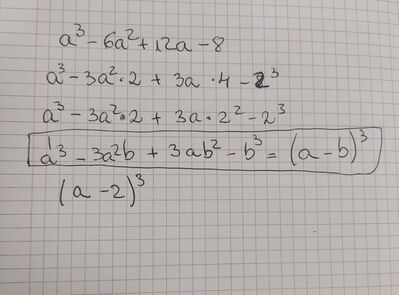 a³ - 6a² + 12a - 8
a³ - 3a² · 2 + 3a · 4 - 2³
a³ - 3a² · 2 + 3a · 2² - 2³
a³ - 3a²b + 3ab² - b³ = (a - b)³
(a - 2)³